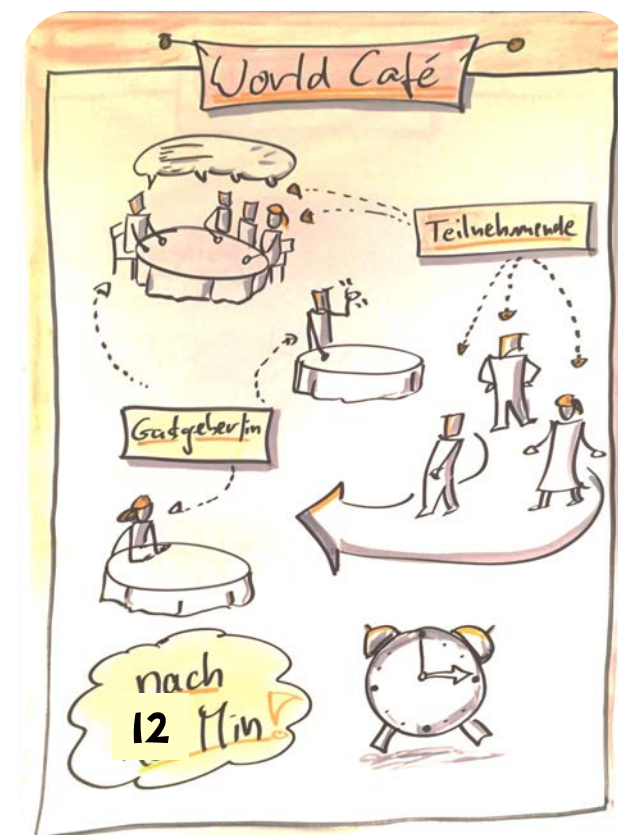 World Café
Teilnehmende
Gastgeber/in
nach
12 Min!